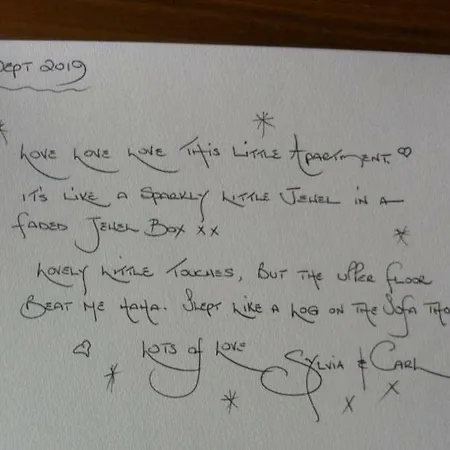 Sept 2019
Love Love Love This Little Apartment ♡
It's Like a Sparkly Little Jewel in a
faded Jewel Box xx
Lovely Little Touches, But the upper floor
Beat me haha. Slept like a log on the Sofa tho
Lots of Love Sylvia & Carl
x x